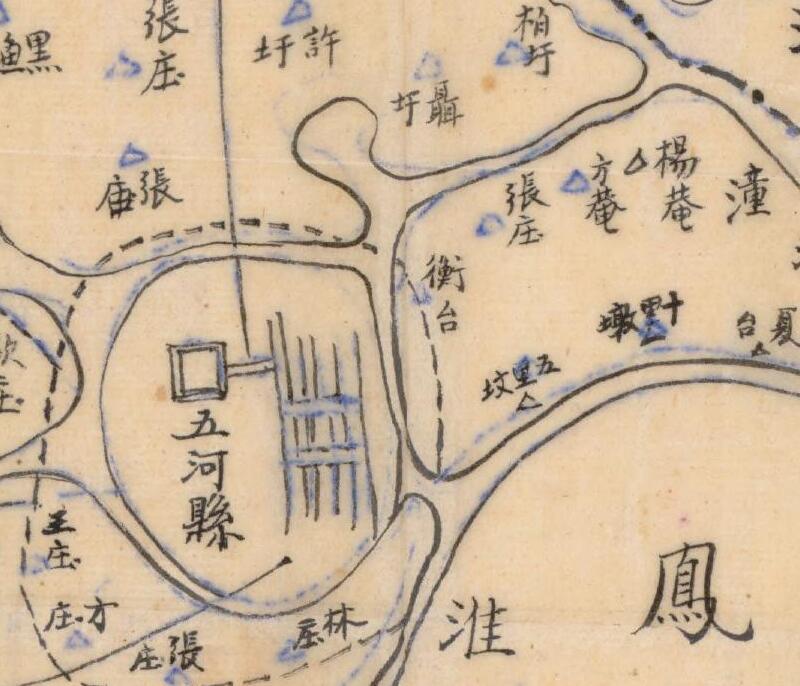 張庄
許圩
柏圩
聶圩
張庙
張庄
方菴
楊菴
潼
衡台
十里墩
夏台
五里坟
五河縣
王庄
方庄
張庄
林庄
淮
鳳